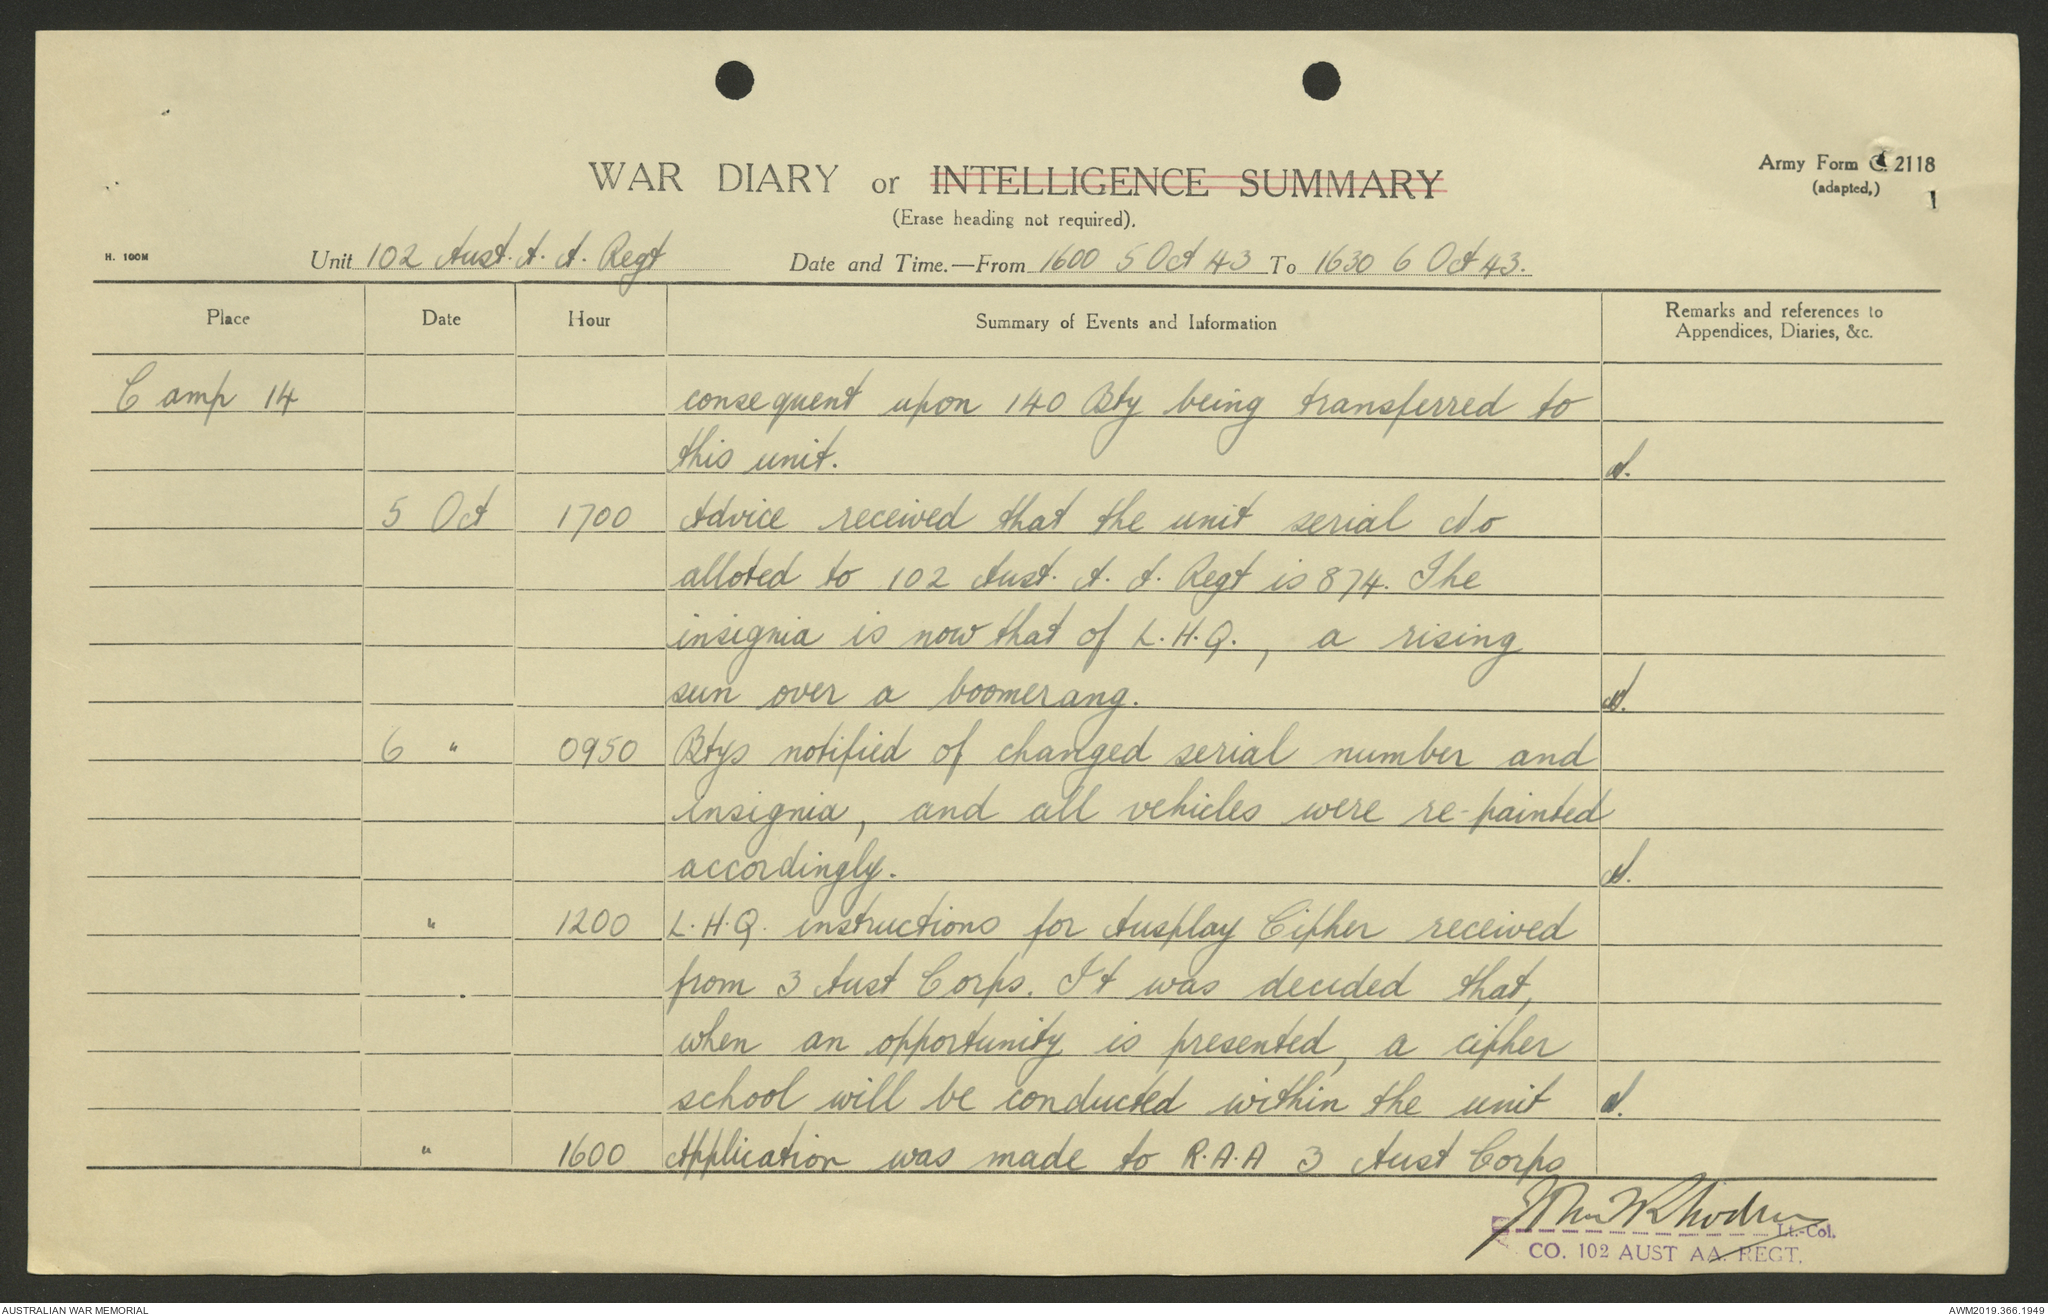 WAR DIARY or INTELLIGENCE SUMMARY
(Erase heading not required).
Army Form C. 2118
(adapted.)
1
H. 100M
Unit 102 Aust. A. A. Regt Date and Time.—From 1600 5 Oct 43 To 1630 6 Oct 43.
Place Date Hour Summary of Events and Information Remarks and references to Appendices, Diaries, &c.
Camp 14 consequent upon 140 Bty being transferred to
this unit.
5 Oct 1700 Advice received that the unit serial No
alloted to 102 Aust. A. A. Regt is 874. The
insignia is now that of L.H.Q., a rising
sun over a boomerang.
6 " 0950 Btys notified of changed serial number and
insignia, and all vehicles were re-painted
accordingly.
" 1200 L.H.Q. instructions for Ausplay Cipher received
from 3 Aust Corps. It was decided that,
when an opportunity is presented, a cipher
school will be conducted within the unit
" 1600 Application was made to R.A.A 3 Aust Corps
Lt.-Col.
CO. 102 AUST AA. REGT.
AUSTRALIAN WAR MEMORIAL
AWM2019.366.1949